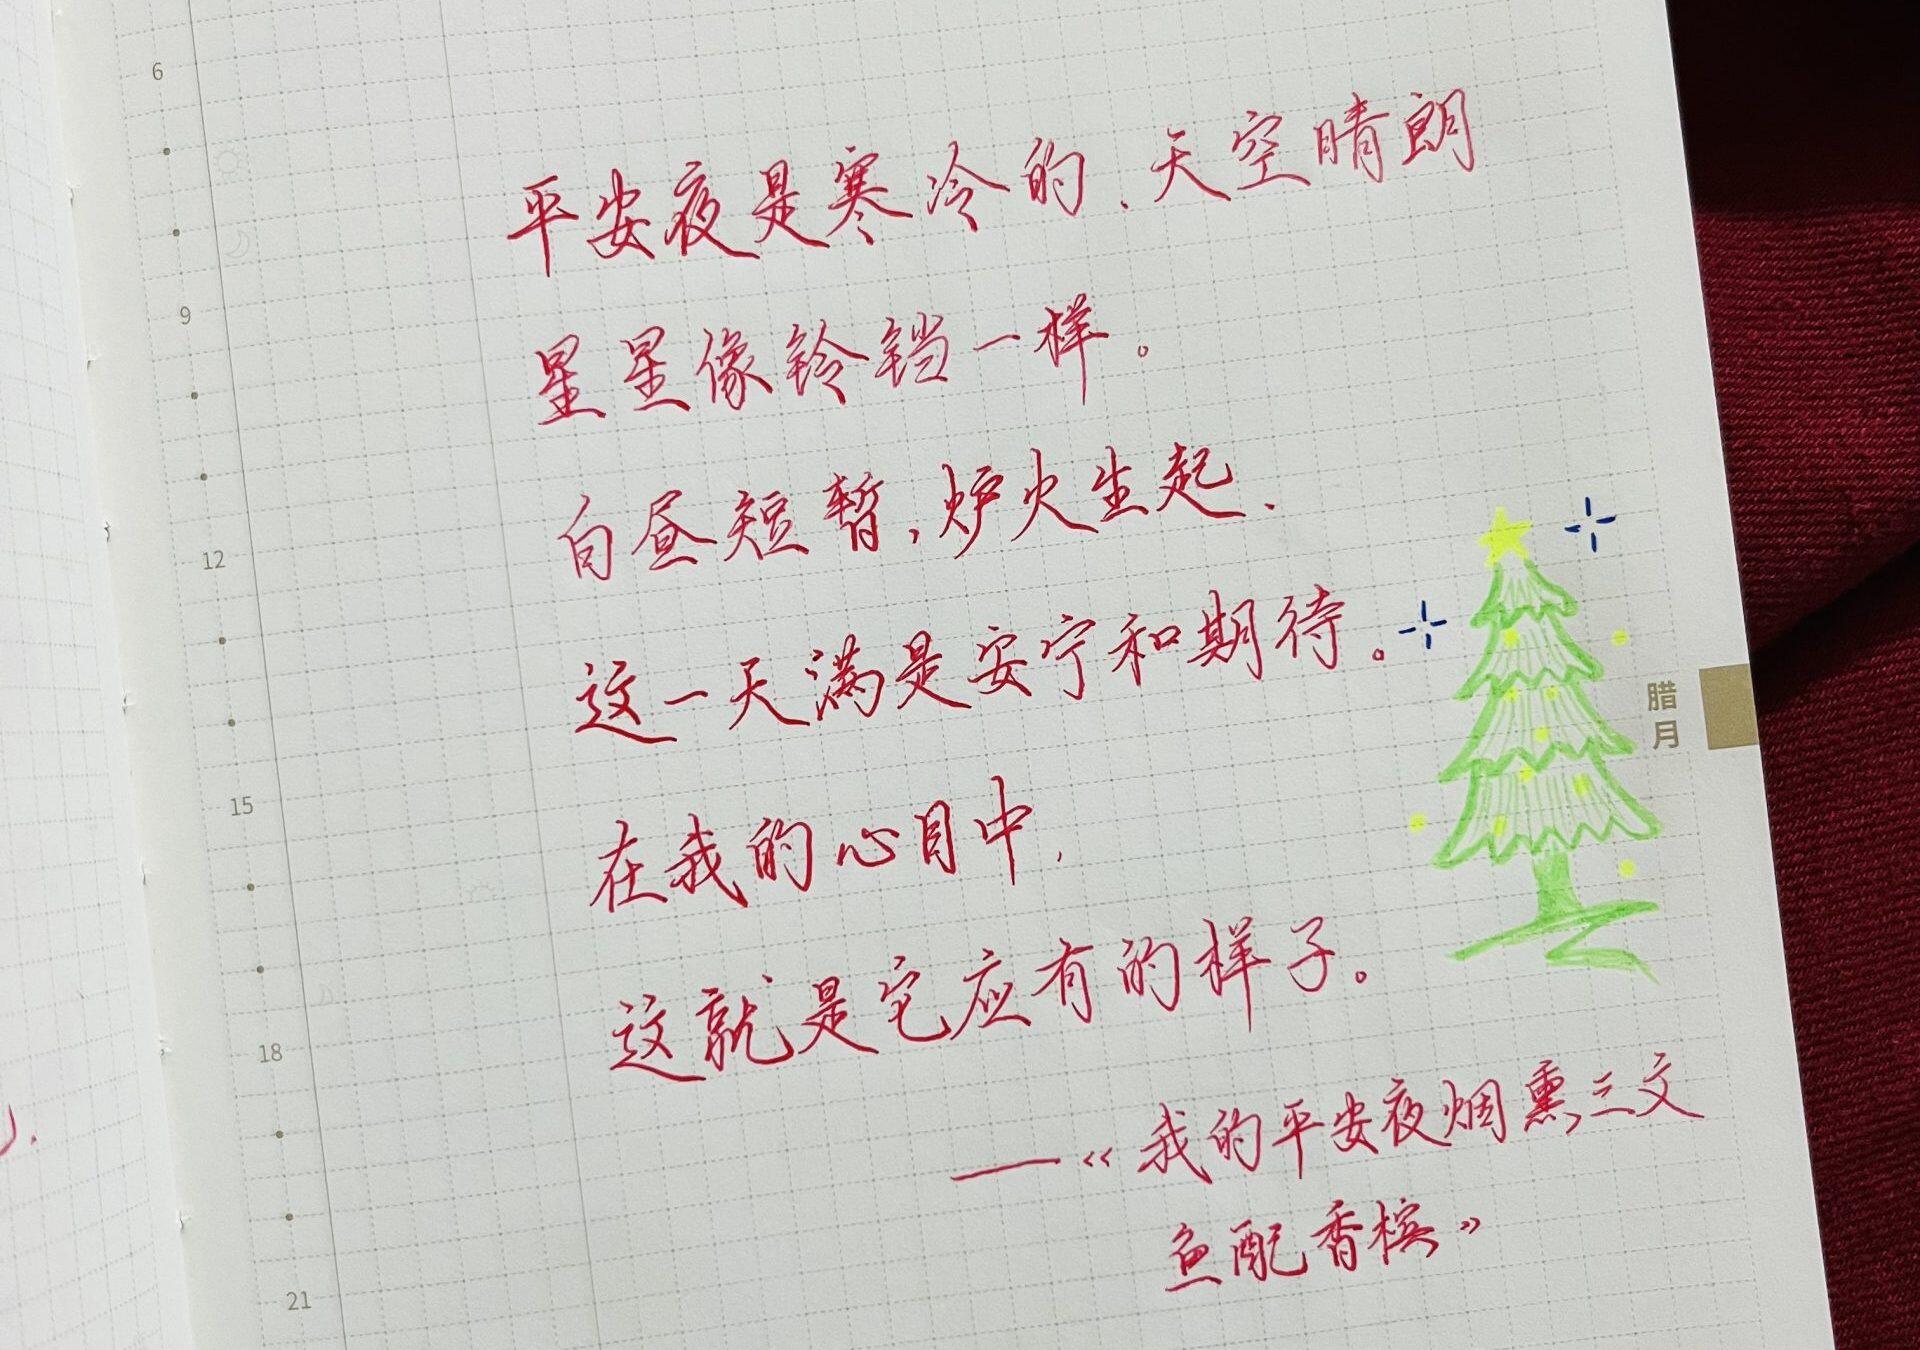 平安夜是寒冷的,天空晴朗
星星像铃铛一样。
白昼短暂,炉火生起,
这一天满是安宁和期待。
在我的心目中,
这就是它应有的样子。
——《我的平安夜烟熏三文
鱼配香槟》
腊月
6
9
12
15
18
21